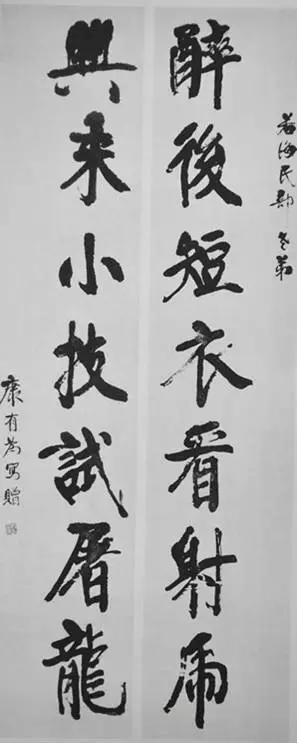 若海民部老弟
醉後短衣看射虎
興来小技試屠龍
康有為寫贈